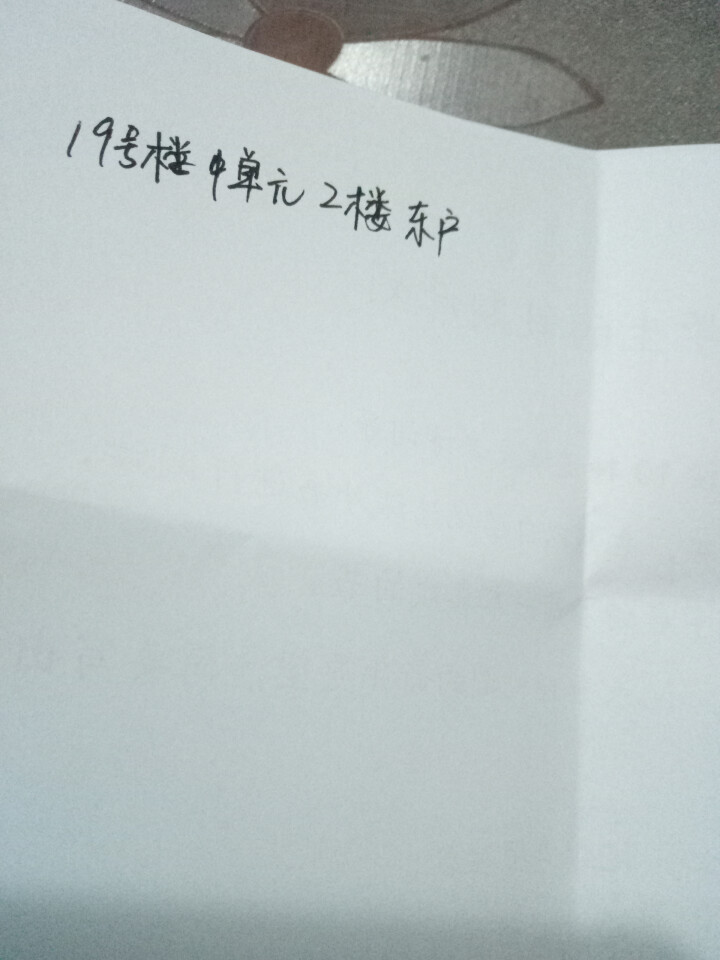 19号楼中单元2楼东户